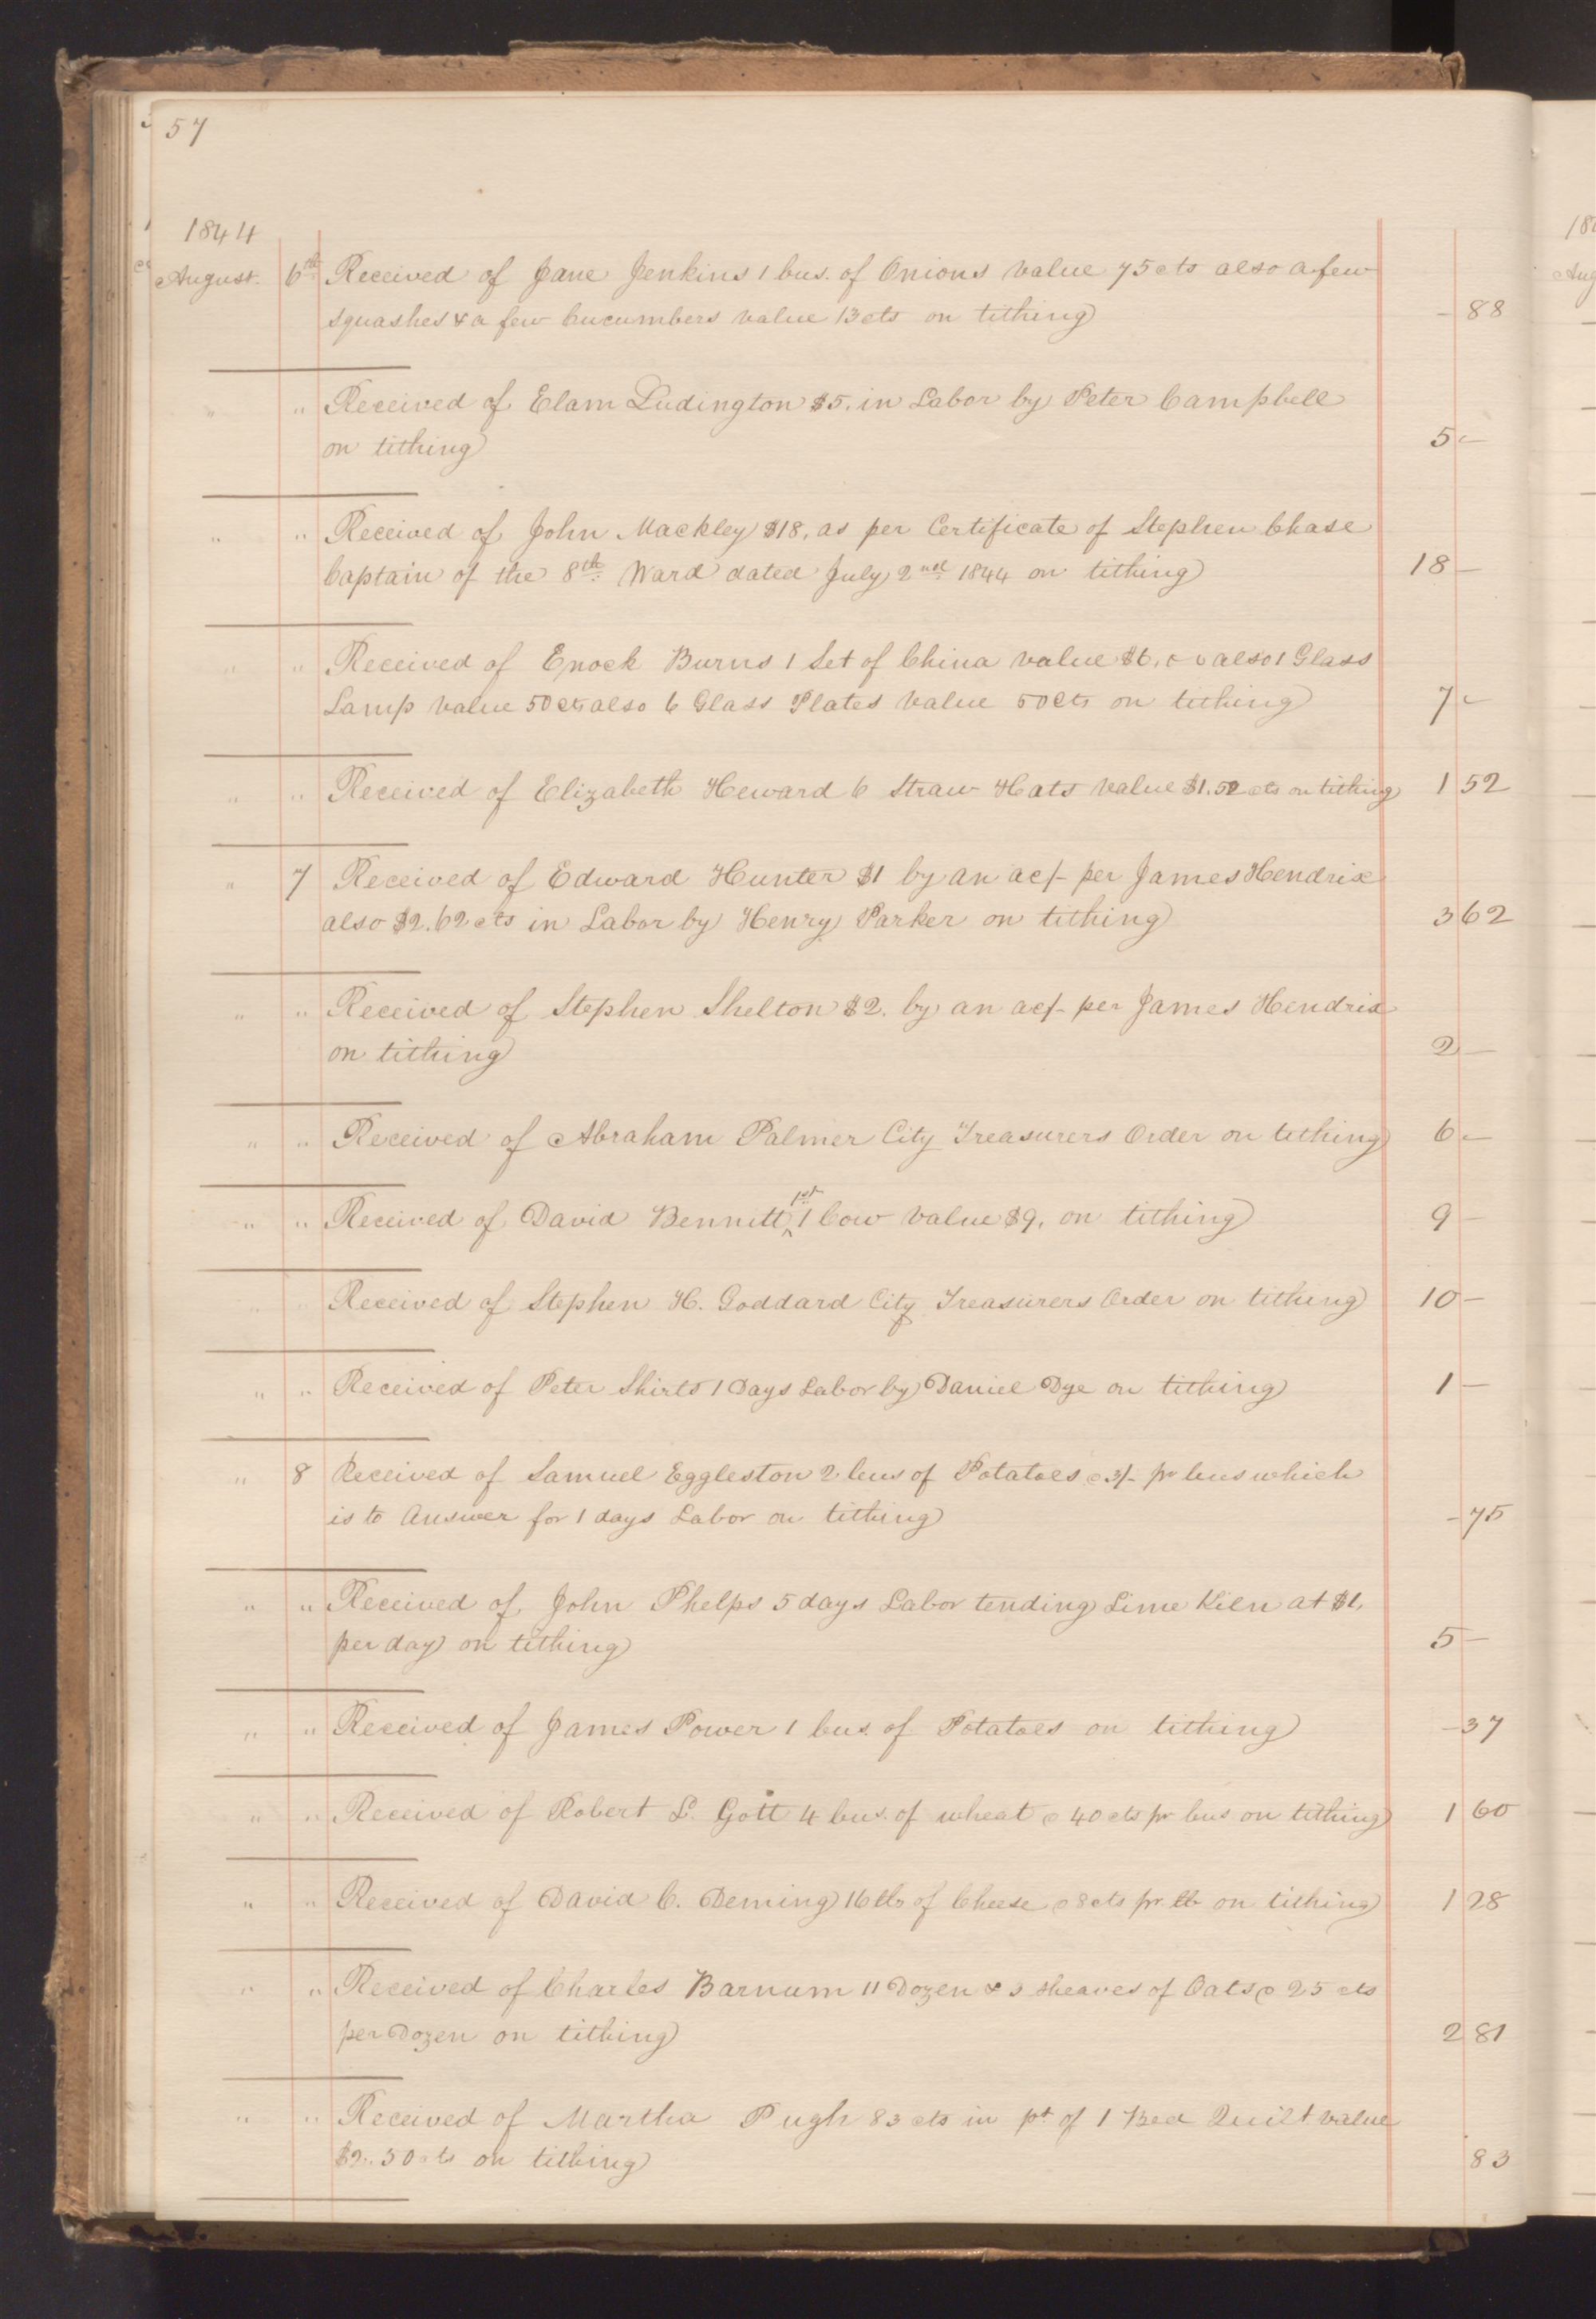 57
1844
August. 6th Received of Jane Jenkins 1 bus. of Onions value 75 cts also a few
squashes & a few Cucumbers value 13 cts on tithing - 88
" " Received of Elam Ludington $5. in Labor by Peter Campbell
on tithing 5 -
" " Received of John Mackley $18, as per Certificate of Stephen Chase
Captain of the 8th Ward dated July 2nd 1844 on tithing 18 -
" " Received of Enock Burns 1 Set of China value $6.00 also 1 Glass
Lamp value 50 cts also 6 Glass Plates value 50 cts on tithing 7 -
" " Received of Elizabeth Heward 6 Straw Hats value $1.52 cts on tithing 1 52
" 7 Received of Edward Hunter $1 by an ac/- per James Hendrix
also $2.62 cts in Labor by Henry Parker on tithing 3 62
" " Received of Stephen Shelton $2. by an ac/- per James Hendrix
on tithing 2 -
" " Received of Abraham Palmer City Treasurers Order on tithing 6 -
" " Received of David Bennitt 1st 1 Cow value $9, on tithing 9 -
" " Received of Stephen H. Goddard City Treasurers Order on tithing 10 -
" " Received of Peter Shirts 1 Days Labor by Daniel Dye on tithing 1 -
" 8 Received of Samuel Eggleston 2 bus of Potatoes @ 3/- pr bus which
is to Answer for 1 days Labor on tithing - 75
" " Received of John Phelps 5 days Labor tending Lime Kiln at $1,
per day on tithing 5 -
" " Received of James Power 1 bus. of Potatoes on tithing - 37
" " Received of Robert L. Gott 4 bus. of wheat @ 40 cts pr bus on tithing 1 60
" " Received of David C. Deming 16 lbs of Cheese @ 8 cts pr lb on tithing 1 28
" " Received of Charles Barnum 11 Dozen & 3 sheaves of Oats @ 25 cts
per Dozen on tithing 2 81
" " Received of Martha Pugh 83 cts in pt of 1 Bed Quilt value
$2.50 cts on tithing 83